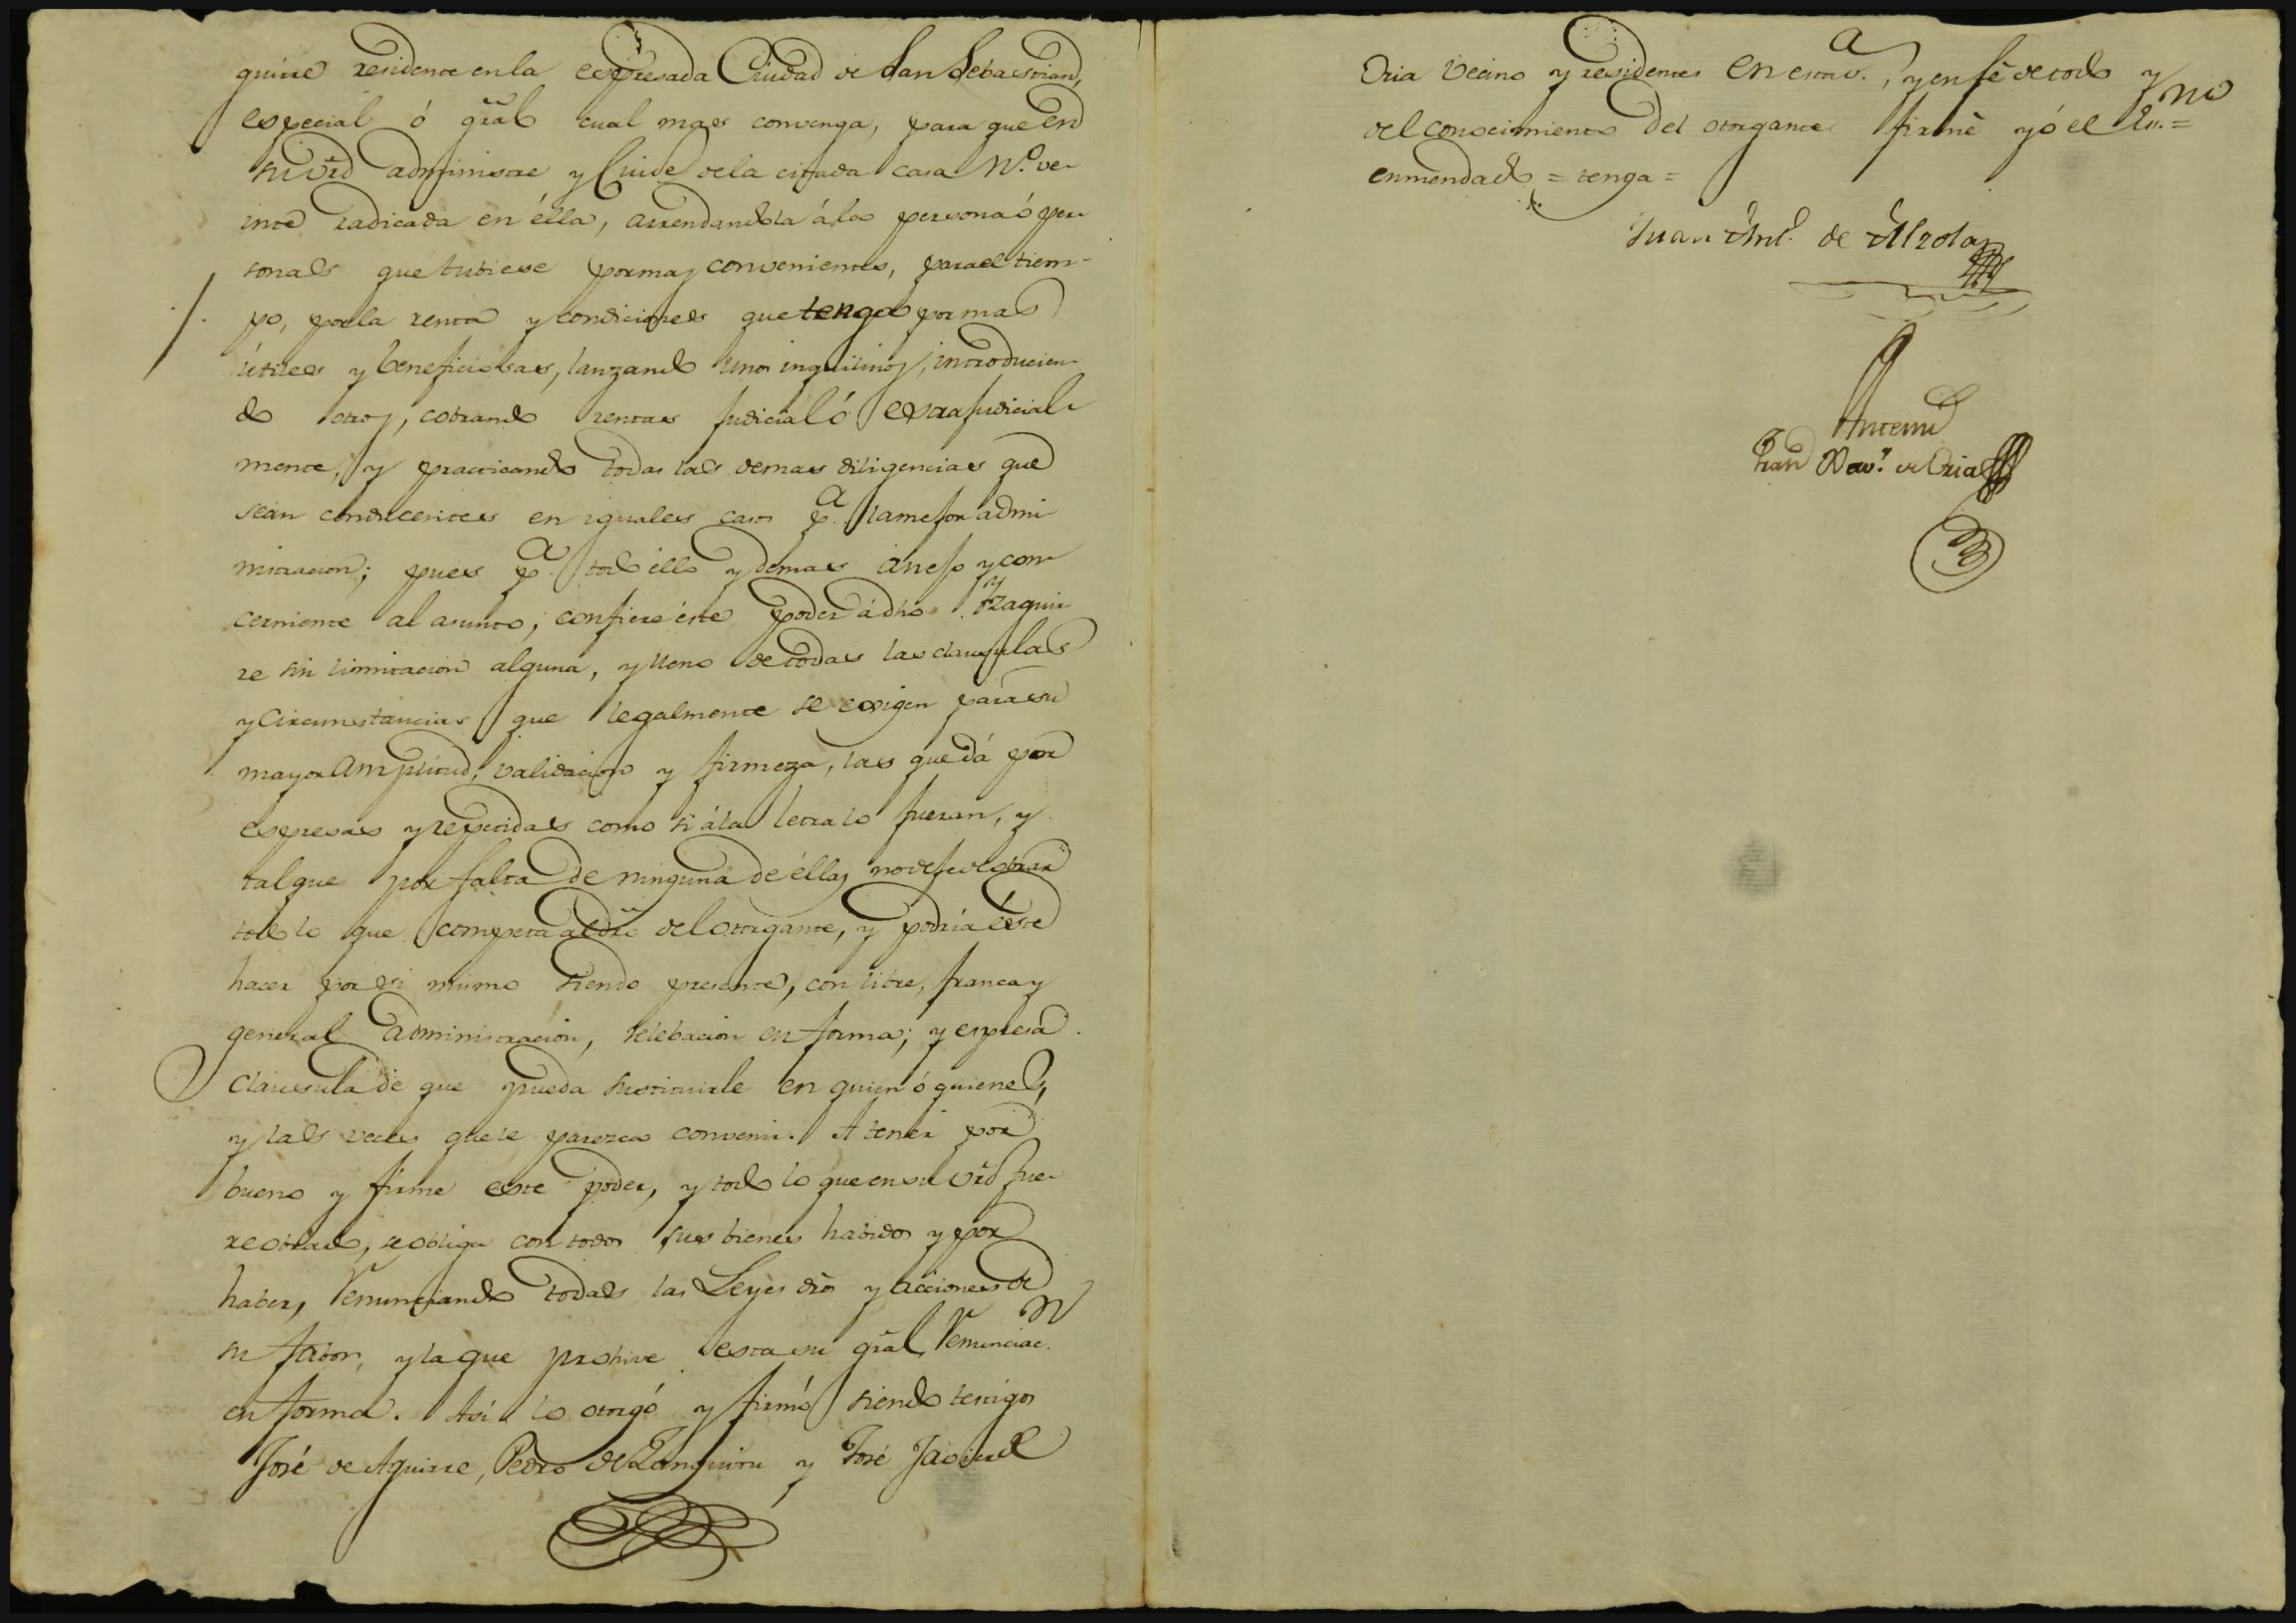 quirre residente en la espresada Ciudad de San Sebastian,
especial ó grãl cual mas convenga, para que en
su vrd administre y Cuide de la citada casa N.º ve-
inte radicada en élla, arrendandola á la persona ó per-
sonas que tubiese por mas convenientes, para el tiem-
po, por la renta y condiciones que tenga por mas
útiles y beneficiosas, lanzando unos inquilinos, introducien-
do otros, cobrando rentas judicial ó extrajudicial-
mente, y practicando todas las demas diligencias que
sean conducentes en iguales casos p.ª la mejor admi-
nistracion; pues p.ª todo ello y demas anejo y con-
cerniente al asunto, confiere éste poder á dho Yzaguir-
re sin limitacion alguna, y lleno de todas las clausulas
y Circunstancias que legalmente se exigen para su
mayor amplitud, validacion y firmeza, las que dá por
espresas y repetidas como si á la letra lo fueran, y
tal que por falta de ninguna de éllas no deje de obrar
todo lo que competa al dro del otorgante, y podria éste
hacer por si mismo siendo presente, con libre, franca y
general administracion, relebacion en forma; y espresa
clausula de que pueda sustituirle en quien ó quienes,
y las veces que le parezca convenir. A tener por
bueno y firme este poder, y todo lo que en su vrd fue-
re obrado, se obliga con todos sus bienes habidos y por
haber, Renunciando todas las Leyes dros y acciones de
su fabor, y la que prohive esta su grãl Renunciac.n
en forma. Asi lo otorgó y firmó siendo testigos
José de Aguirre, Pedro de y José Javier de
Oria Vecino y residentes en esta v.ª, y en fé de todo y
del conocimiento del otorgante firmé yó el Es.no =
enmendado = tenga =
Juan Ant.º de Alzola
Antemi
Fran Xav.r de Oria